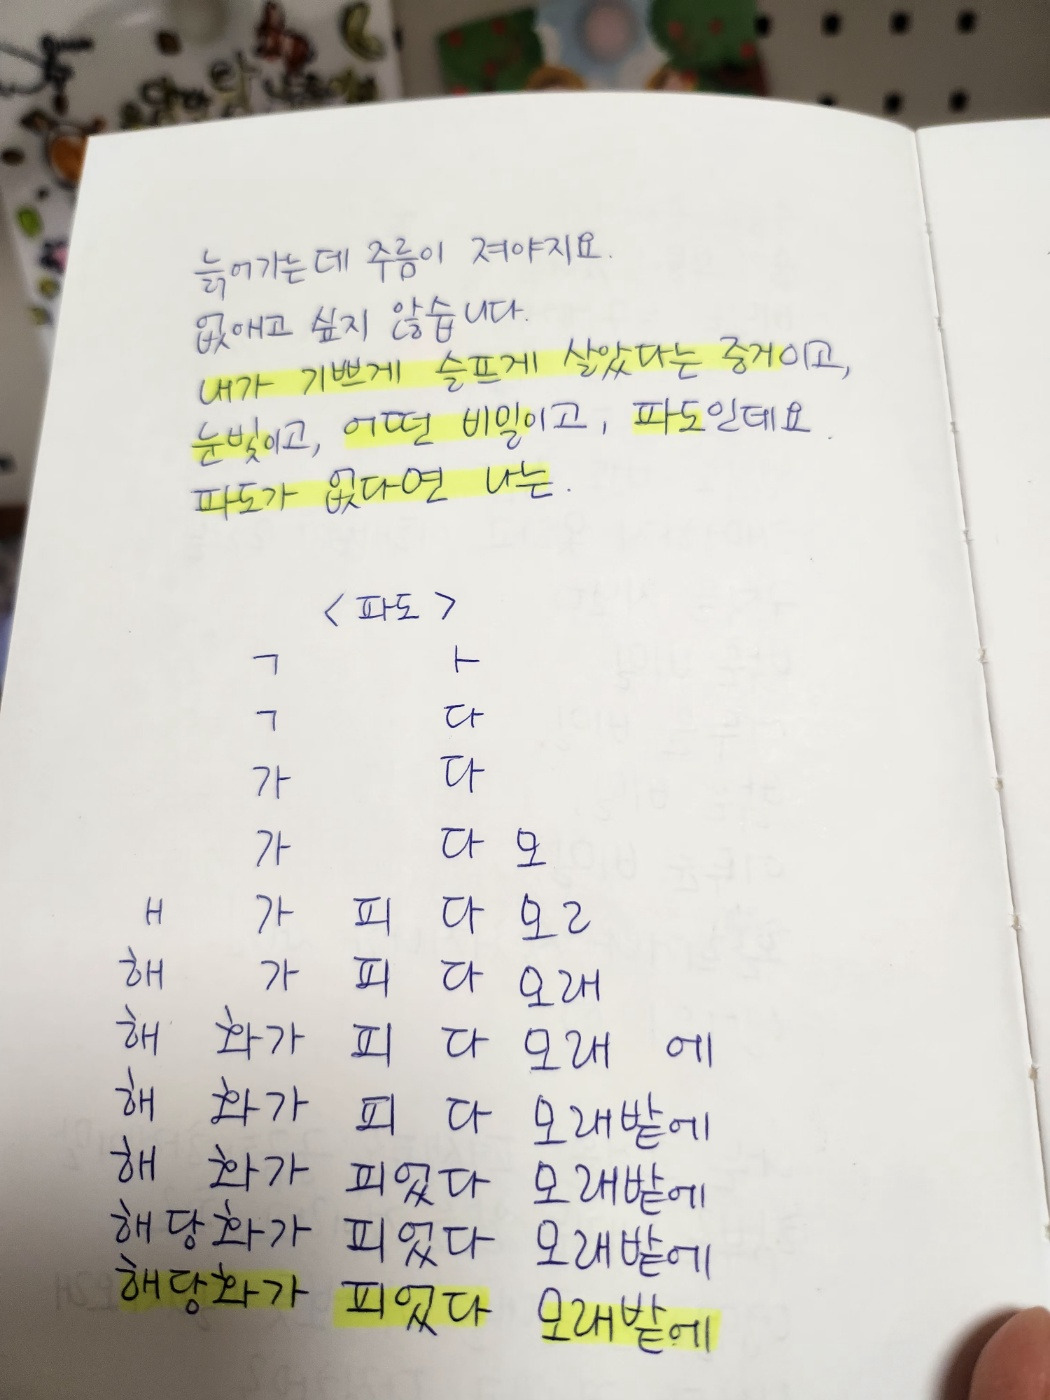 늙어가는데 주름이 져야지요.
없애고 싶지 않습니다.
내가 기쁘게 슬프게 살았다는 증거이고,
눈빛이고, 어떤 비밀이고, 파도인데요.
파도가 없다면 나는.
<파도>
ㄱ ㅏ
ㄱ 다
가 다
가 다 모
ㅐ 가 피 다 모ㄹ
해 가 피 다 모래
해 화가 피 다 모래 에
해 화가 피 다 모래밭에
해 화가 피었다 모래밭에
해당화가 피었다 모래밭에
해당화가 피었다 모래밭에